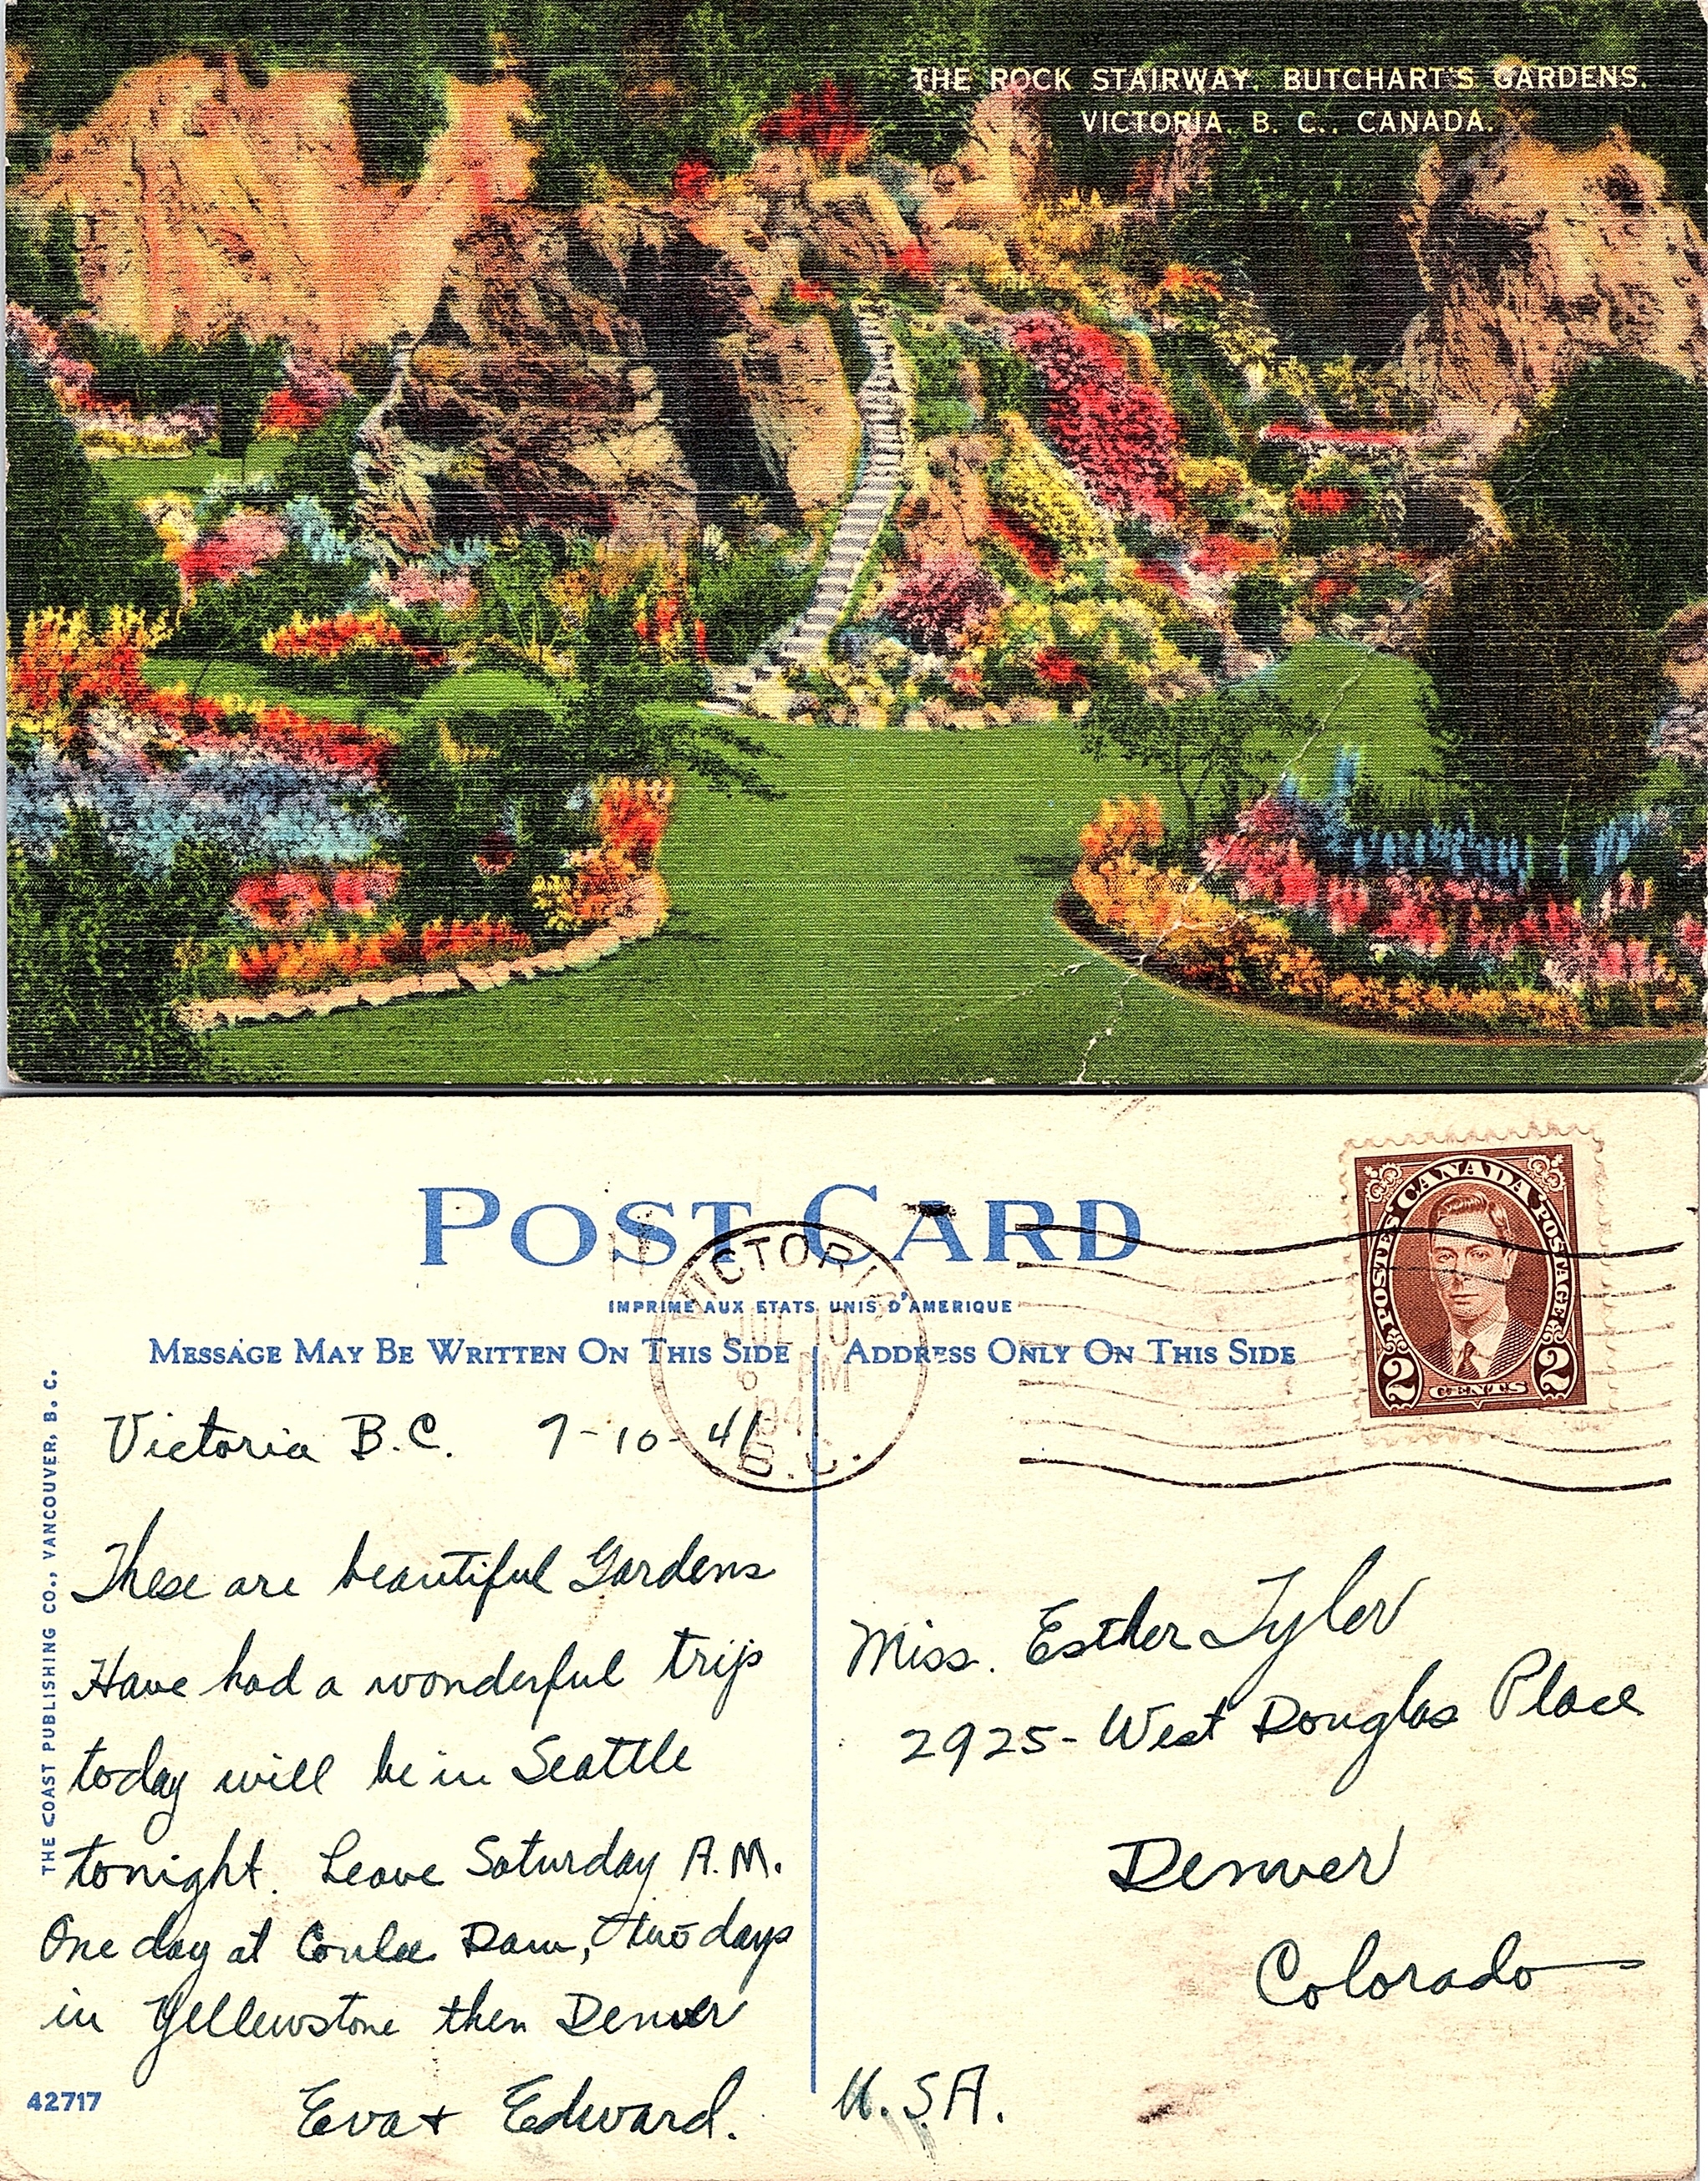 THE ROCK STAIRWAY. BUTCHART'S GARDENS.
VICTORIA. B. C.. CANADA.
POST CARD
IMPRIME AUX ETATS UNIS D'AMERIQUE
MESSAGE MAY BE WRITTEN ON THIS SIDE
ADDRESS ONLY ON THIS SIDE
VICTORIA
JUL 10
6 PM
1941
B.C.
CANADA
POSTES POSTAGE
2 CENTS 2
THE COAST PUBLISHING CO., VANCOUVER, B. C.
Victoria B.C. 7-10-41
These are beautiful Gardens
Have had a wonderful trip
today will be in Seattle
tonight. Leave Saturday A.M.
One day at Coulee Dam, two days
in Yellowstone then Denver
Eva + Edward.
42717
Miss. Esther Tyler
2925- West Douglas Place
Denver
Colorado
U.S.A.